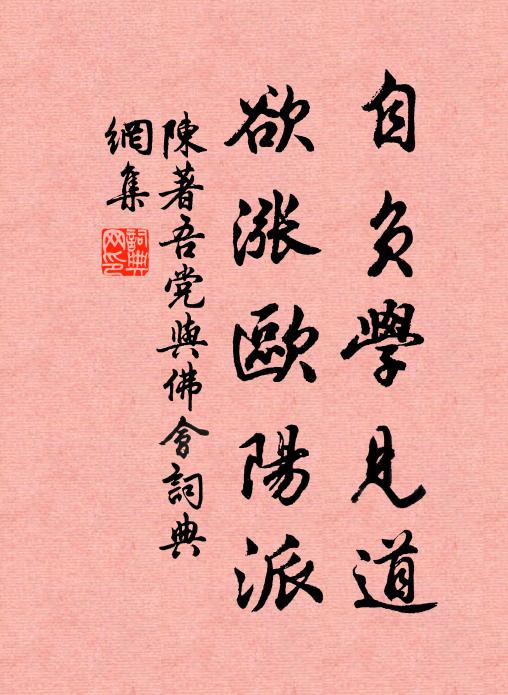 自負學見道
欲漲歐陽派
陳著吾党與佛會詞典
網集
詞典
网印